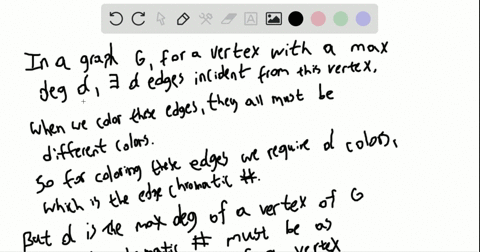 In a graph G, for a vertex with a max
deg d, ∃ d edges incident from this vertex.
When we color these edges, they all must be
different colors.
So for coloring these edges we require d colors,
which is the edge chromatic #.
But d is the max deg of a vertex of G
chromatic # must be as
of a vertex